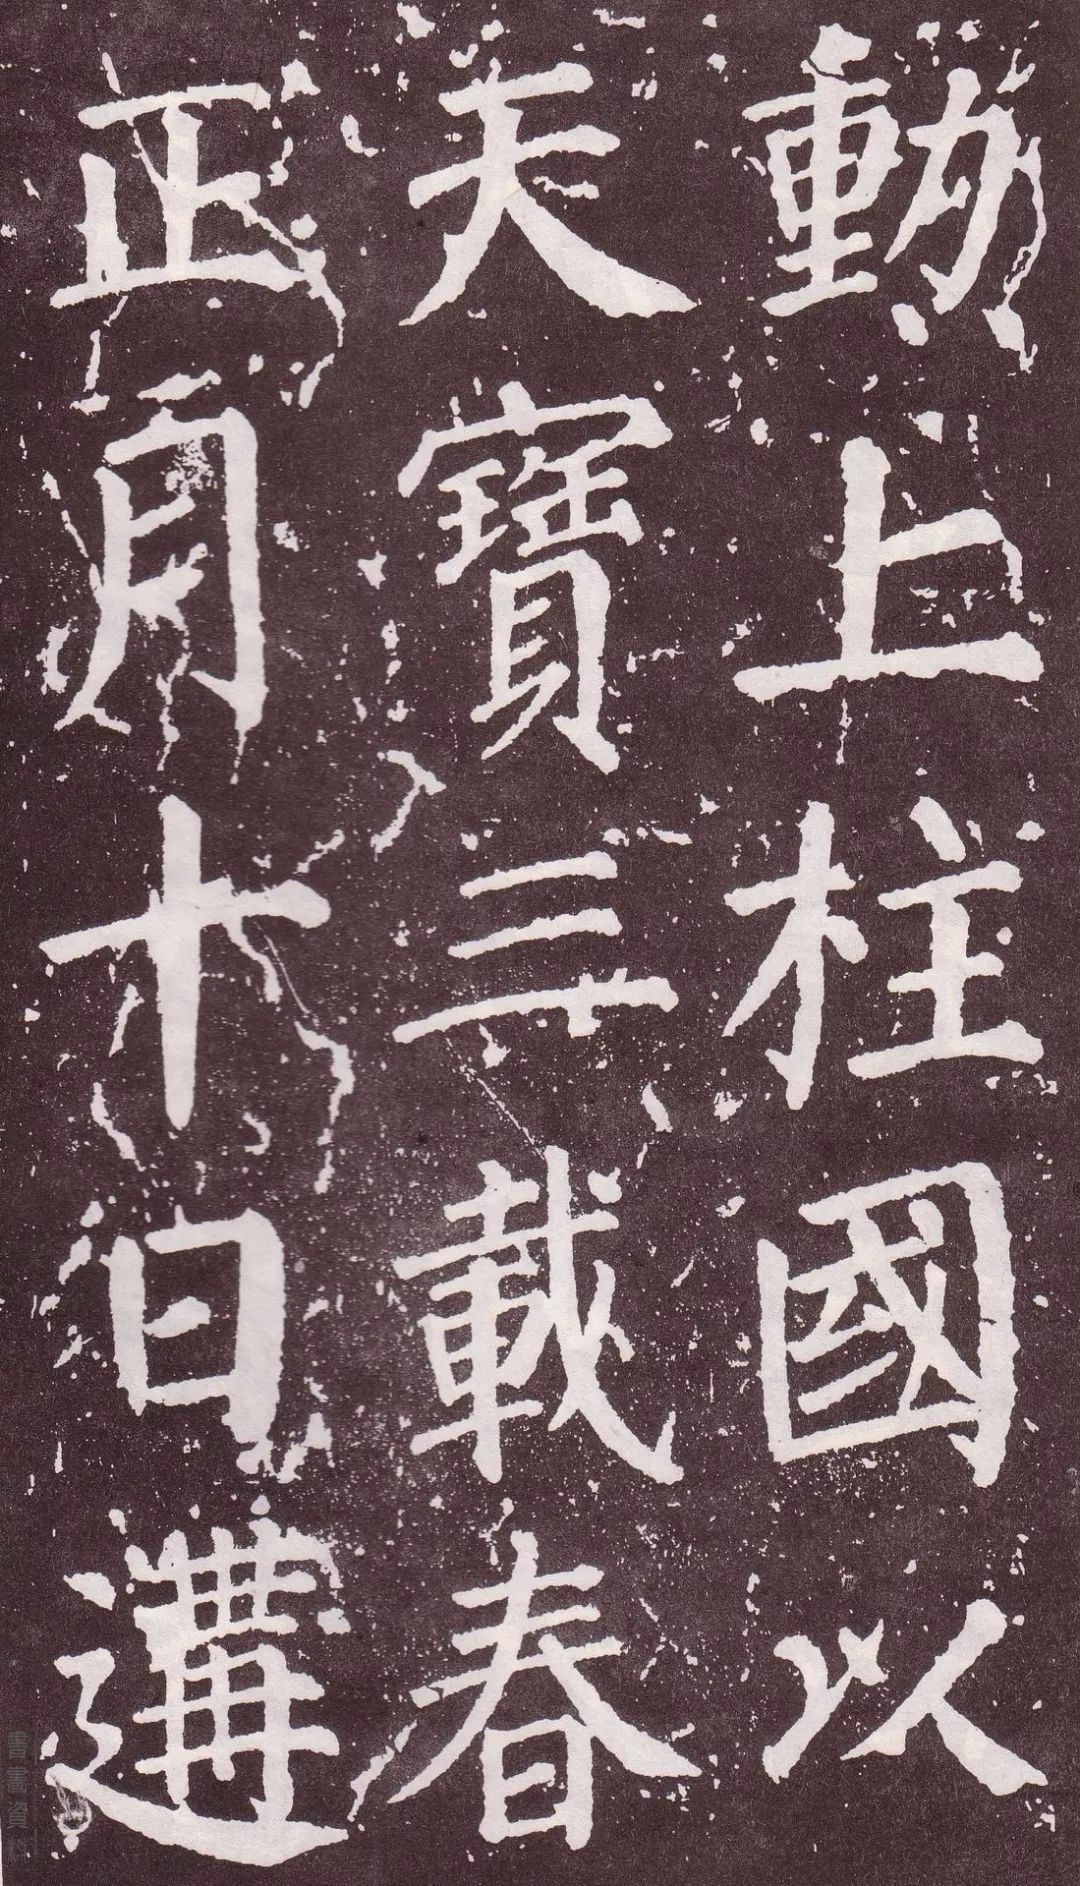 勳上柱國以
天寶三載春
正月十日遘
書畫資料